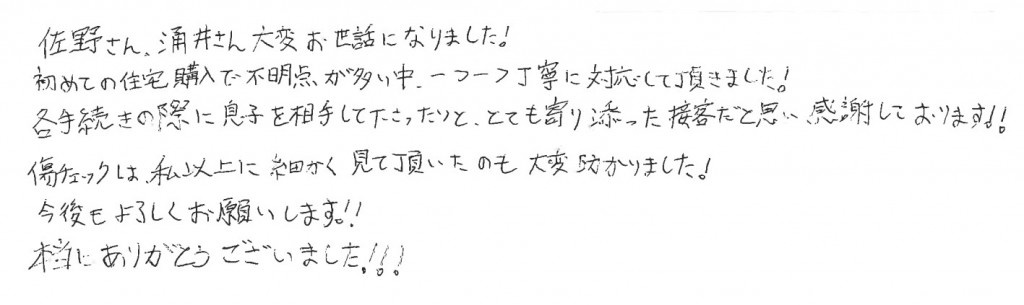 佐野さん、涌井さん大変お世話になりました!
初めての住宅購入で不明点が多い中、一つ一つ丁寧に対応して頂きました!
各手続きの際に息子を相手して下さったりと、とても寄り添った接客だと思い、感謝しております!!
傷チェックは、私以上に細かく見て頂いたのも大変助かりました!
今後もよろしくお願いします!!
本当にありがとうございました!!!